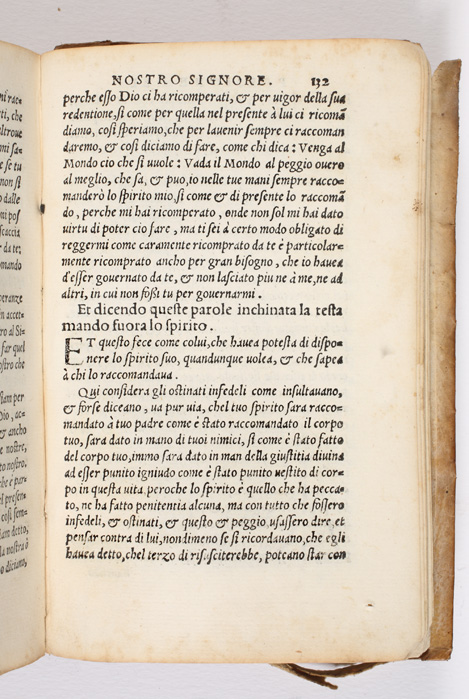 NOSTRO SIGNORE. 132
perche esso Dio ci ha ricomperati, & per uigor della sua
redentione, si come per quella nel presente à lui ci ricomã
diamo, cosi speriamo, che per lauenir sempre ci raccoman
daremo, & cosi diciamo di fare, come chi dica : Venga al
Mondo cio che si uuole : Vada il Mondo al peggio ouero
al meglio, che sa, & puo, io nelle tue mani sempre racco=
manderò lo spirito mio, si come & di presente lo raccomã
do, perche mi hai ricomperato, onde non sol mi hai dato
uirtu di poter cio fare, ma ti sei à certo modo obligato di
reggermi come caramente ricomprato da te è particolar=
mente ricomprato ancho per gran bisogno, che io haueа
d'esser gouernato da te, & non lasciato piu ne à me, ne ad
altri, in cui non fossi tu per gouernarmi.
Et dicendo queste parole inchinata la testa
mando fuora lo spirito.
ET questo fece come colui, che hauea potesta di dispo=
nere lo spirito suo, quandunque uolea, & che sapea
à chi lo raccomandaua.
Qui considera gli ostinati infedeli come insultauano,
& forse diceano, ua pur uia, chel tuo spirito sara racco=
mandato à tuo padre come è stato raccomandato il corpo
tuo, sara dato in mano di tuoi nimici, si come è stato fatto
del corpo tuo, immo sara dato in man della giustitia diuina
ad esser punito igniudo come è stato punito uestito di cor=
po in questa uita, peroche lo spirito è quello che ha pecca=
to, ne ha fatto penitentia alcuna, ma con tutto che fossero
infedeli, & ostinati, & questo & peggio usassero dire, et
pensar contra di lui, nondimeno se si ricordauano, che egli
hauea detto, chel terzo di risusciterebbe, poteano star con